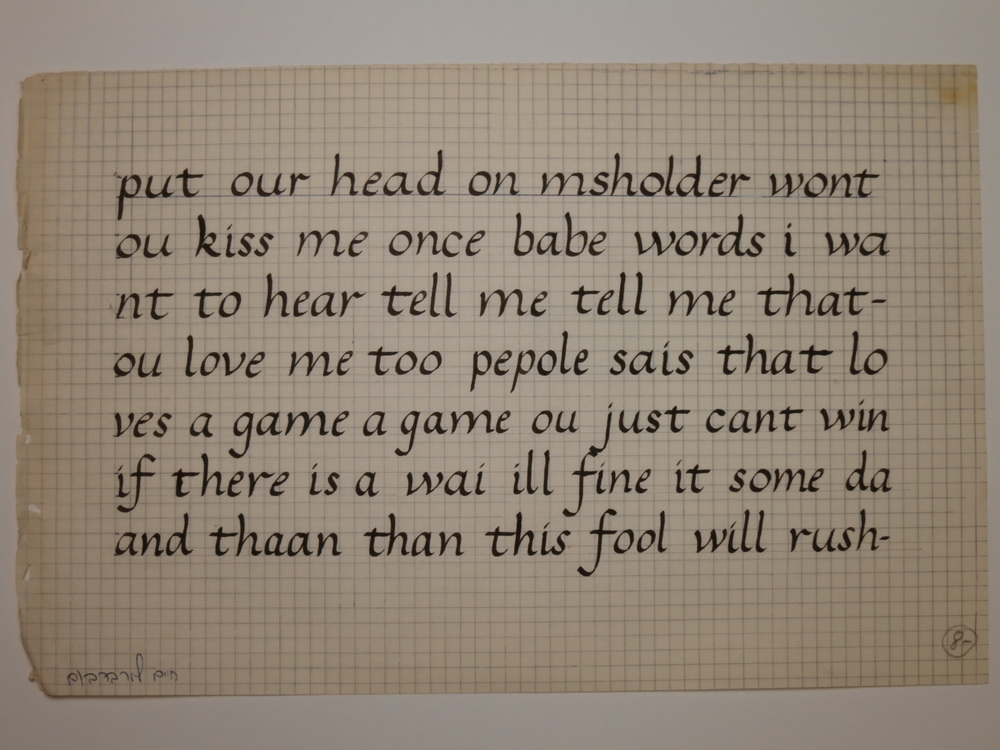 put our head on msholder wont
ou kiss me once babe words i wa
nt to hear tell me tell me that-
ou love me too pepole sais that lo
ves a game a game ou just cant win
if there is a wai ill fine it some da
and thaan than this fool will rush-
8-
חיים